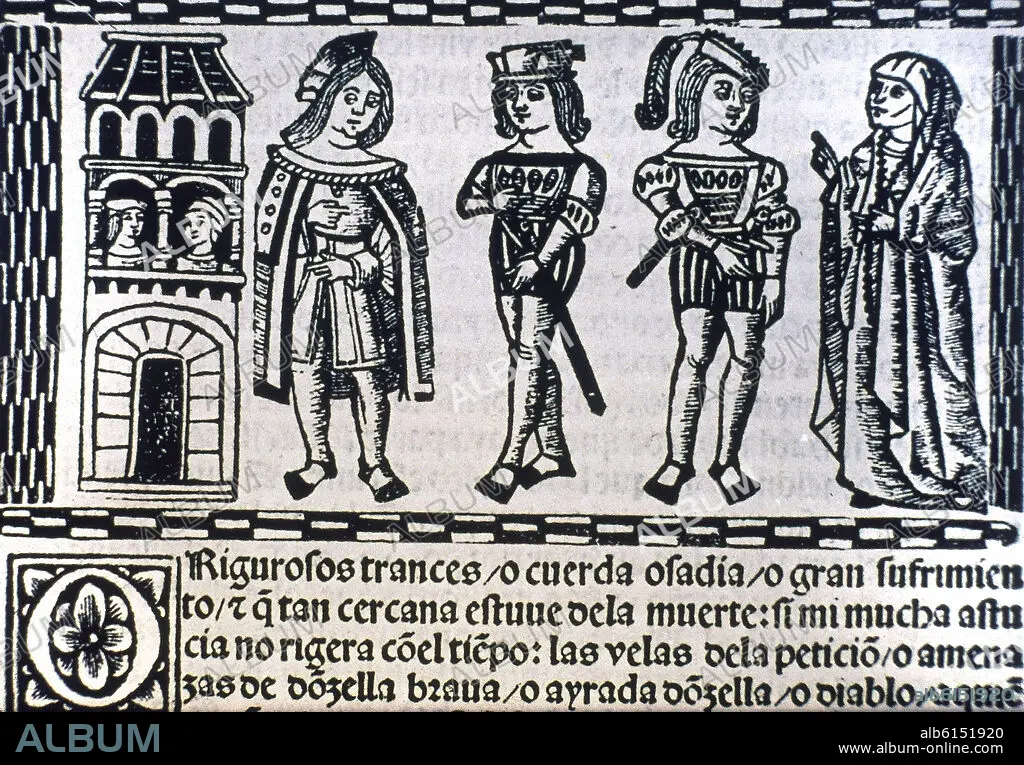 O Rigurosos trances/o cuerda osadia/o gran sufrimien
to/⁊ q̃ tan cercana estuue dela muerte: si mi mucha astu
cia no rigera cõel tiẽpo: las velas dela peticiõ/o amena
zas de dõzella braua/o ayrada dõzella/o diablo/aquiẽ
ALBUM
alb6151920
www.album-online.com